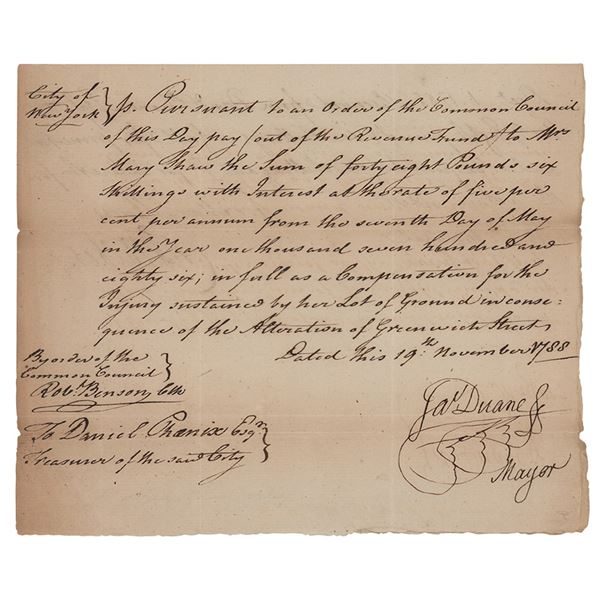 City of
New York } ss. Pursuant to an Order of the Common Council
of this Day pay (out of the Revenue Fund) to Mrs
Mary Shaw the Sum of forty eight Pounds six
Shillings with Interest at the rate of five per
cent per annum from the seventh Day of May
in the Year one thousand seven hundred and
eighty six; in full as a Compensation for the
Injury sustained by her Lot of Ground in conse-
quence of the Alteration of Greenwich Street,
Dated this 19th November 1788
By order of the
Common Council }
Robt Benson, Clk
Jas Duane
Mayor
To Daniel Phœnix Esqr
Treasurer of the said City }